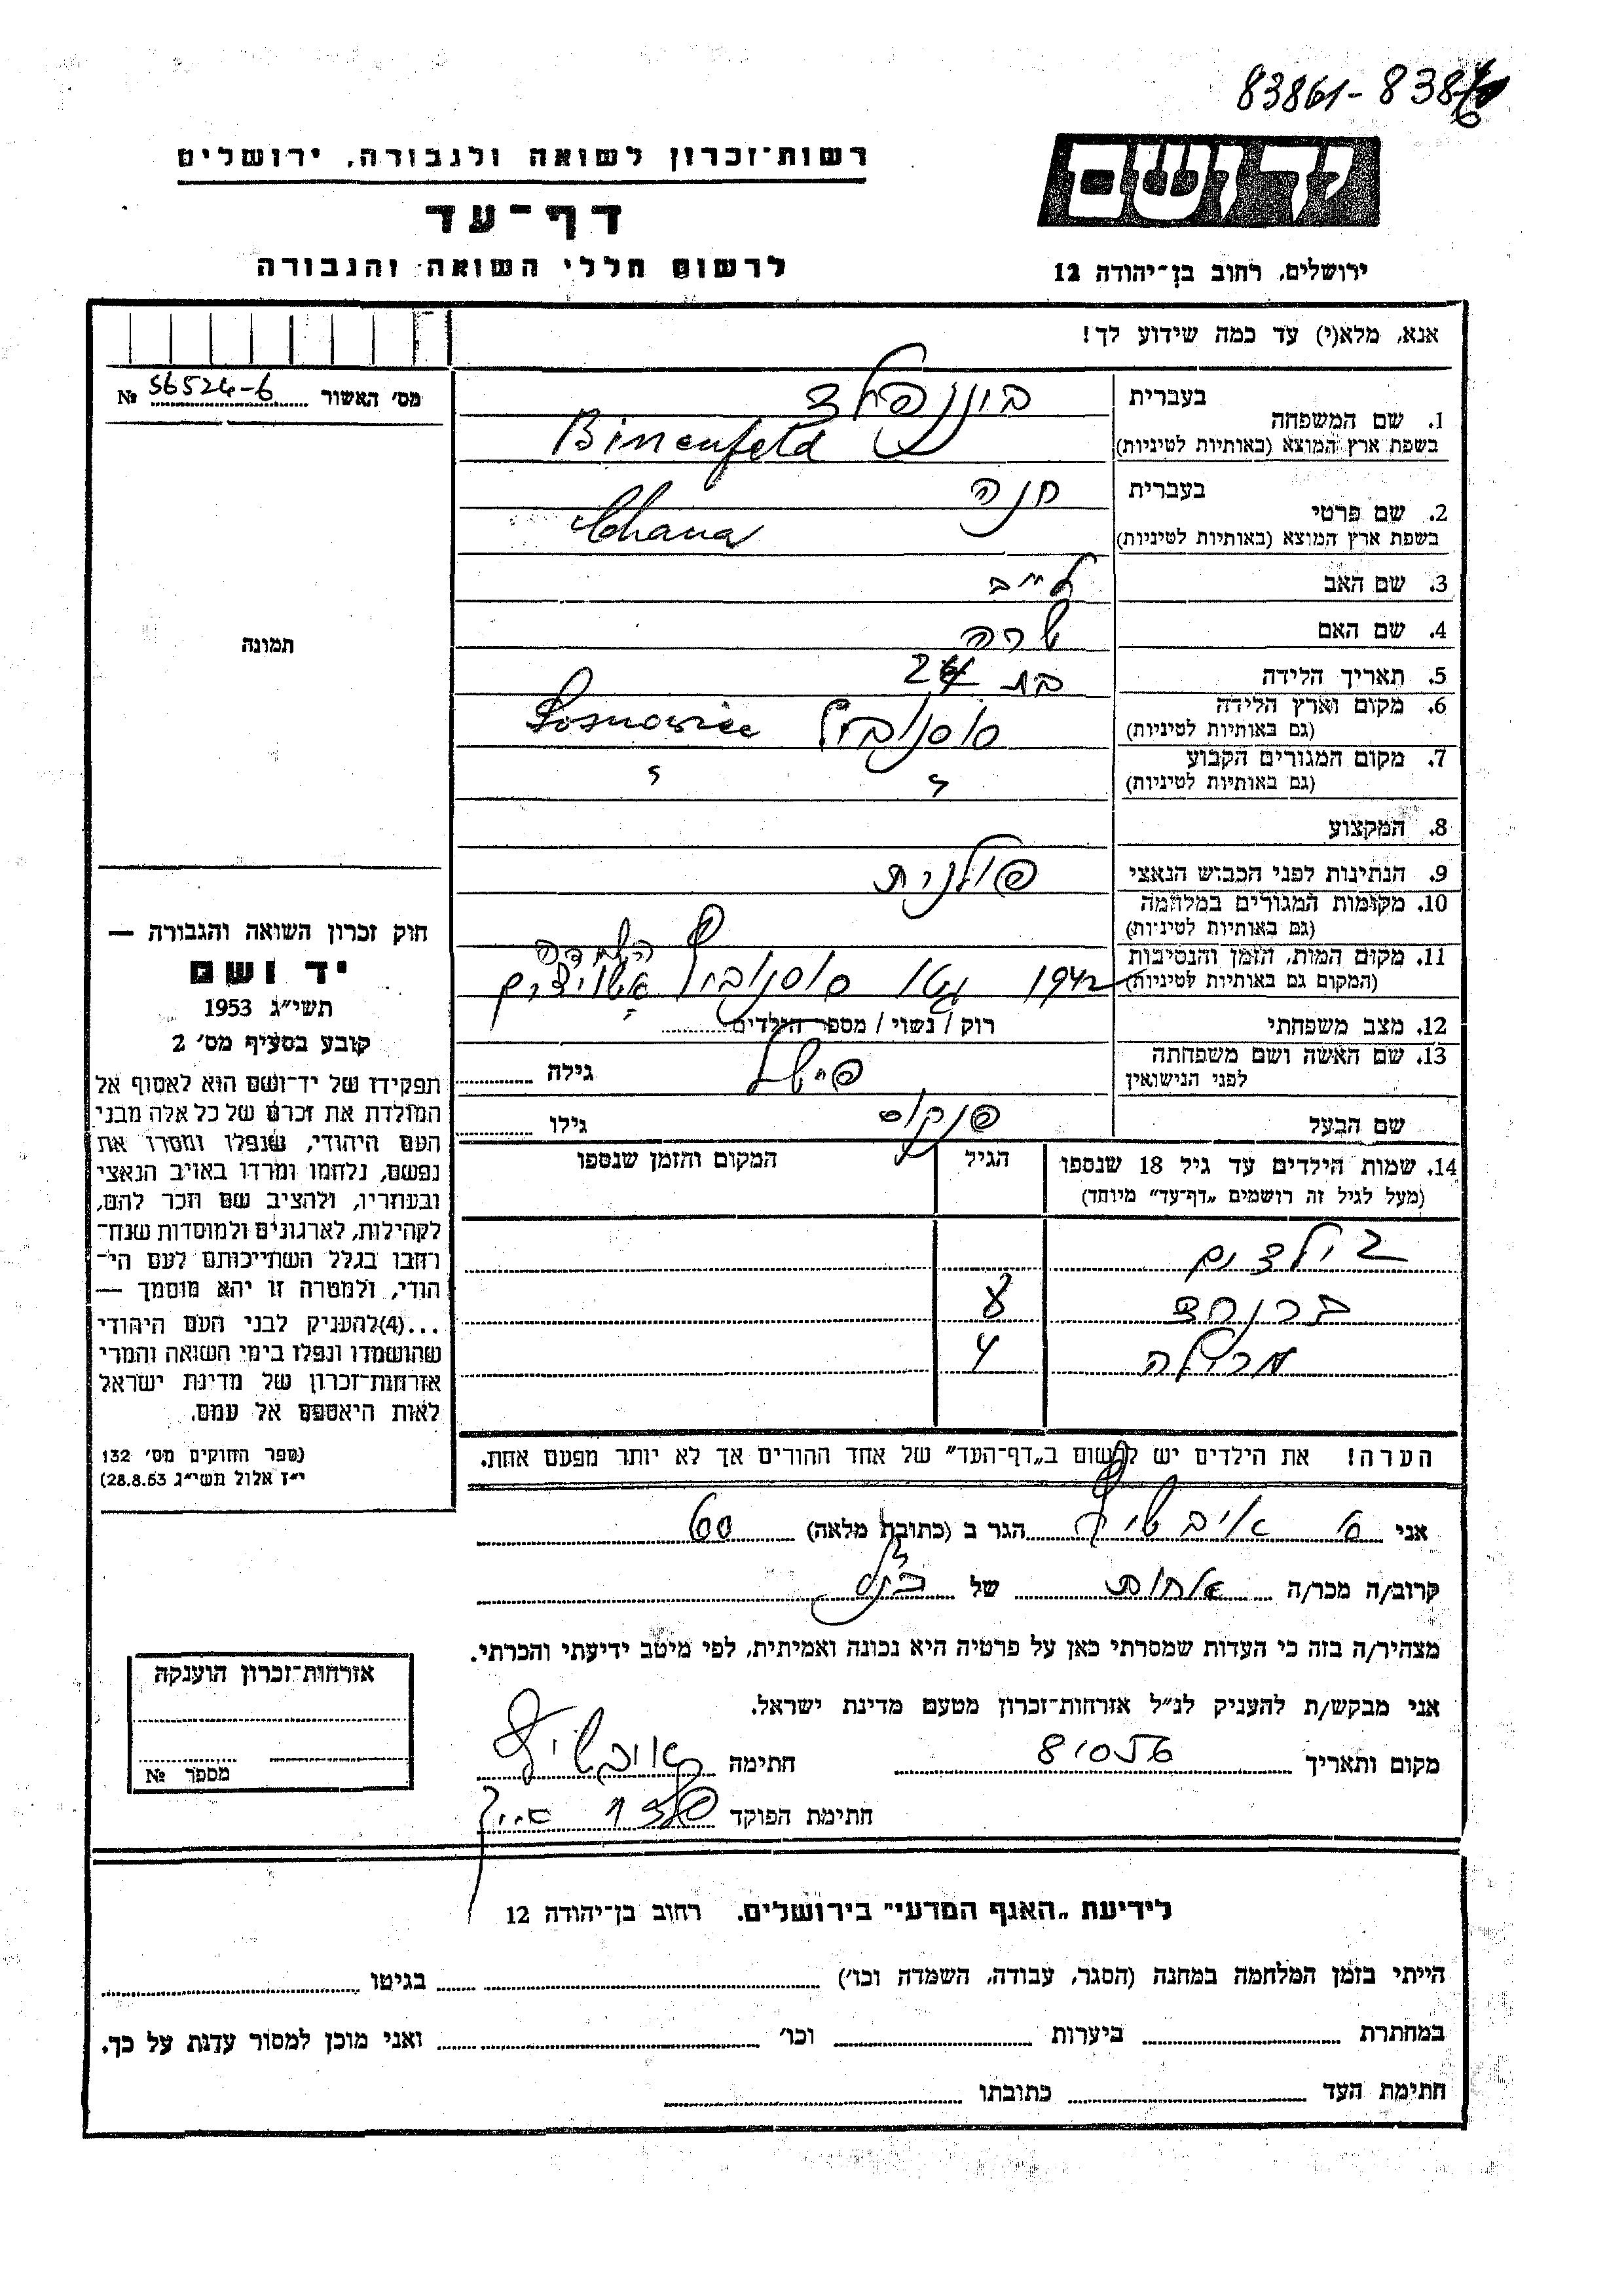 83861-838
רשות־זכרון לשואה ולגבורה, ירושלים
דף־עד
לרשום חללי השואה והגבורה
יד ושם
ירושלים, רחוב בן־יהודה 12
אנא, מלא(י) עד כמה שידוע לך!
מס׳ האשור 56524-6 №
תמונה
1. שם המשפחה בעברית בוננפלד
בשפת ארץ המוצא (באותיות לטיניות) Binenfeld
2. שם פרטי בעברית חנה
בשפת ארץ המוצא (באותיות לטיניות) Chana
3. שם האב לייב
4. שם האם שרה
5. תאריך הלידה בת 24
6. מקום וארץ הלידה (גם באותיות לטיניות) סוסנוביץ Sosnowiec
7. מקום המגורים הקבוע (גם באותיות לטיניות) ״ ״
8. המקצוע
9. הנתינות לפני הכבוש הנאצי פולנית
10. מקומות המגורים במלחמה (גם באותיות לטיניות)
11. מקום המות, הזמן והנסיבות (המקום גם באותיות לטיניות) 1942 גטו סוסנוביץ
12. מצב משפחתי רוק / נשוי / מספר הילדים
13. שם האשה ושם משפחתה לפני הנישואין פישל גילה
שם הבעל פנקוס גילו
14. שמות הילדים עד גיל 18 שנספו (מעל לגיל זה רושמים „דף־עד״ מיוחד) הגיל המקום והזמן שנספו
2 ילדים
ברנרד 8
מרילה 4
הערה! את הילדים יש לרשום ב„דף־העד״ של אחד ההורים אך לא יותר מפעם אחת.
חוק זכרון השואה והגבורה —
יד ושם
תשי״ג 1953
קובע בסעיף מס׳ 2
תפקידו של יד־ושם הוא לאסוף אל
המולדת את זכרם של כל אלה מבני
העם היהודי, שנפלו ומסרו את
נפשם, נלחמו ומרדו באויב הנאצי
ובעוזריו, ולהציב שם וזכר להם,
לקהילות, לארגונים ולמוסדות שנח־
רחבו בגלל השתייכותם לעם הי־
הודי, ולמטרה זו יהא מוסמך —
...(4) להעניק לבני העם היהודי
שהושמדו ונפלו בימי השואה והמרי
אזרחות־זכרון של מדינת ישראל
לאות היאספם אל עמם.
(ספר החוקים מס׳ 132
י״ז אלול תשי״ג 28.8.53)
אני הגר ב (כתובת מלאה) 60
קרוב/ה מכר/ה אחות של
מצהיר/ה בזה כי העדות שמסרתי כאן על פרטיה היא נכונה ואמיתית, לפי מיטב ידיעתי והכרתי.
אני מבקש/ת להעניק לנ״ל אזרחות־זכרון מטעם מדינת ישראל.
מקום ותאריך 81056 חתימה
חתימת הפוקד
אזרחות־זכרון הוענקה
מספר №
לידיעת „האגף המדעי״ בירושלים. רחוב בן־יהודה 12
הייתי בזמן המלחמה במחנה (הסגר, עבודה, השמדה וכו׳) בגיטו
במחתרת ביערות וכו׳ ואני מוכן למסור עדות על כך.
חתימת העד כתובתו